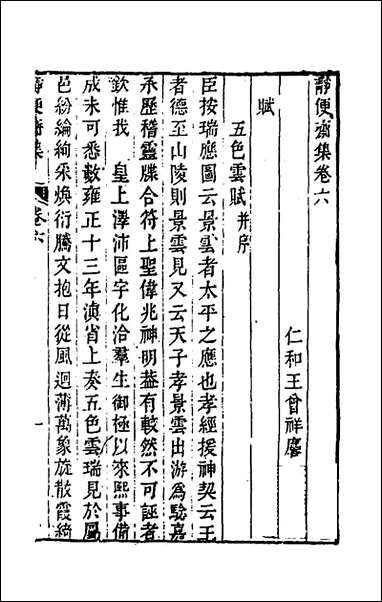 靜便齋集卷六
仁和王曾祥麐
賦
五色雲賦并序
臣按瑞應圖云景雲者太平之應也孝經援神契云王
者德至山陵則景雲見又云天子孝景雲出游爲驗嘉
承歷稽靈牒合符上聖偉兆神明葢有較然不可誣者
欽惟我 皇上澤沛區宇化洽羣生御極以來熙事備
成未可悉數雍正十三年滇省上奏五色雲瑞見於屬
邑紛綸絢采煥衍騰文抱日從風迴薄萬象旋散霞綺
靜便齋集 卷六 一